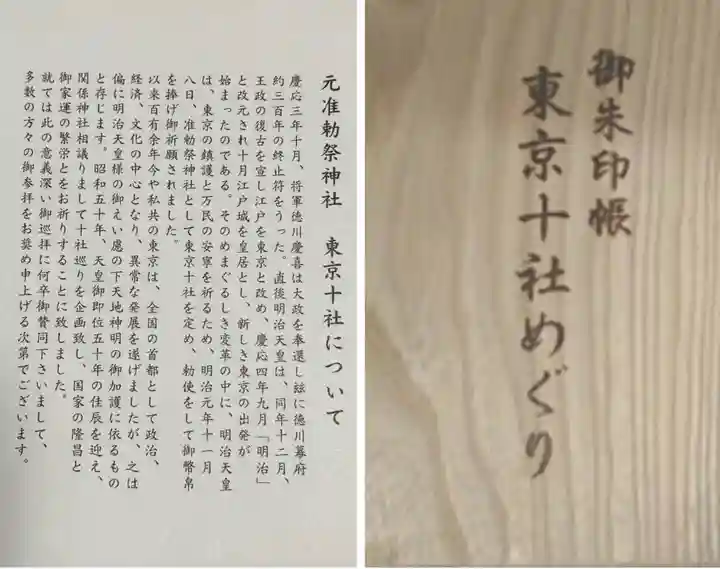 元准勅祭神社 東京十社について
慶応三年十月、将軍徳川慶喜は大政を奉還し玆に徳川幕府
約三百年の終止符をうった。直後明治天皇は、同年十二月、
王政の復古を宣し江戸を東京と改め、慶応四年九月「明治」
と改元され十月江戸城を皇居とし、新しき東京の出発が
始まったのである。そのめまぐるしき変革の中に、明治天皇
は、東京の鎮護と万民の安寧を祈るため、明治元年十一月
八日、准勅祭神社として東京十社を定め、勅使をして御幣帛
を捧げ御祈願されました。
以来百有余年今や私共の東京は、全国の首都として政治、
経済、文化の中心となり、異常な発展を遂げましたが、之は
偏に明治天皇様の御えい慮の下天地神明の御加護に依るもの
と存じます。昭和五十年、天皇御即位五十年の佳辰を迎え、
関係神社相議りまして十社巡りを企画致し、国家の隆昌と
御家運の繁栄とをお祈りすることに致しました。
就ては此の意義深い御巡拝に何卒御賛同下さいまして、
多数の方々の御参拝をお奨め申上げる次第でございます。
御朱印帳
東京十社めぐり